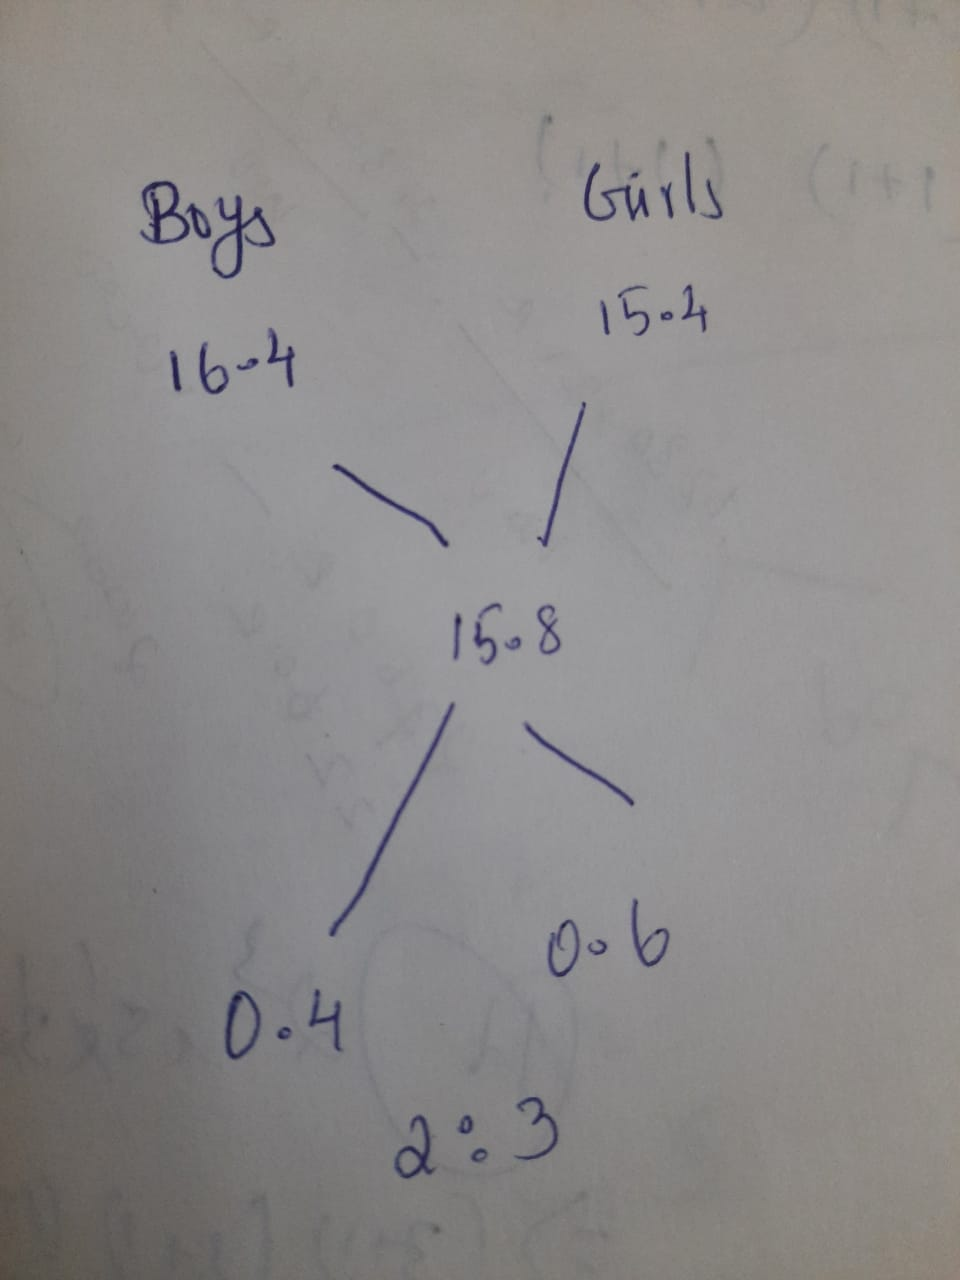 Boys Girls
16.4 15.4
15.8
0.4 0.6
2:3